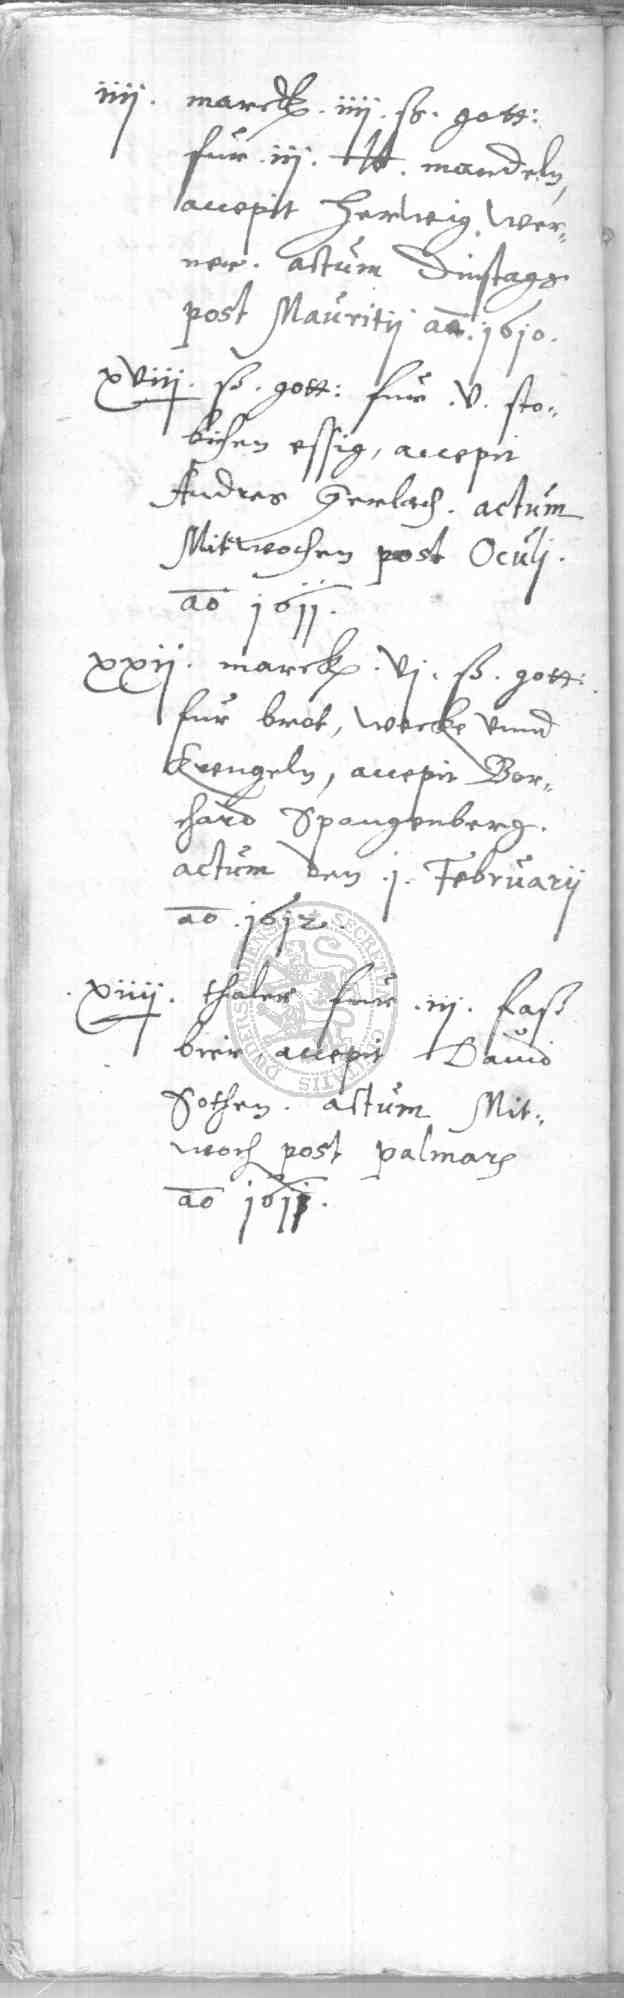 iiij. marck. iiij. ß. gott:
fur .iij. lb. mandeln,
accepit Herweig Wer-
ner. actum Dinstags
post Mauritij ao. 1610.
xviij. ß. gott: fur .v. sto-
bichen essig, accepit
Andres Gerlach. actum
Mitwochen post Oculj.
ao 1611.
xxij. marck. vj. ß. gott:
fur brot, wecke vnnd
Krengeln, accepit Bor-
chard Spangenberg.
actum den .j. Februarij
ao .1612.
xiiij. thaler fur .iij. faß
bier, accepit Dauid
Sothen. actum Mit-
woch post palmar
ao 1611.
SECRETUM CIVITATIS